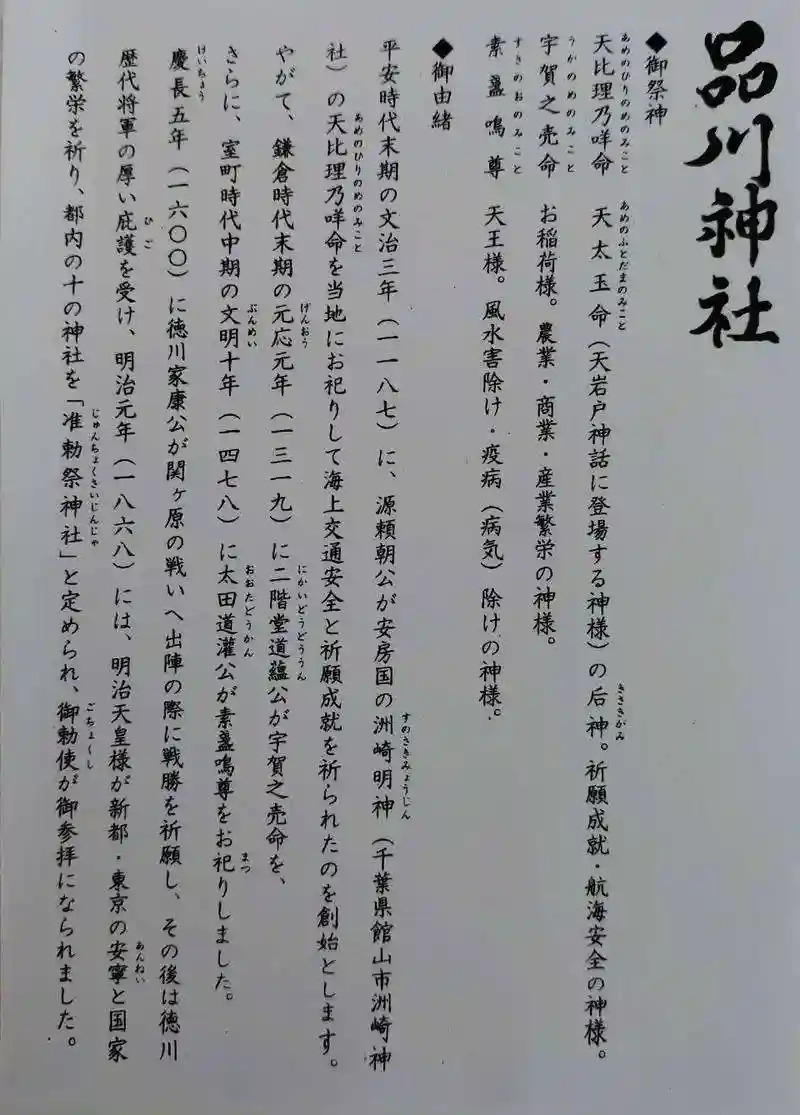 品川神社
◆御祭神
天比理乃咩命　天太玉命（天岩戸神話に登場する神様）の后神。祈願成就・航海安全の神様。
あめのひりのめのみこと　あめのふとだまのみこと　きさきがみ
宇賀之売命　お稲荷様。農業・商業・産業繁栄の神様。
うかのめのみこと
素盞嗚尊　天王様。風水害除け・疫病（病気）除けの神様。
すさのおのみこと
◆御由緒
平安時代末期の文治三年（一一八七）に、源頼朝公が安房国の洲崎明神（千葉県館山市洲崎神
すのさきみょうじん
社）の天比理乃咩命を当地にお祀りして海上交通安全と祈願成就を祈られたのを創始とします。
あめのひりのめのみこと
やがて、鎌倉時代末期の元応元年（一三一九）に二階堂道蘊公が宇賀之売命を、
げんおう　にかいどうどううん
さらに、室町時代中期の文明十年（一四七八）に太田道灌公が素盞嗚尊をお祀りしました。
ぶんめい　おおたどうかん　まつ
慶長五年（一六〇〇）に徳川家康公が関ヶ原の戦いへ出陣の際に戦勝を祈願し、その後は徳川
けいちょう
歴代将軍の厚い庇護を受け、明治元年（一八六八）には、明治天皇様が新都・東京の安寧と国家
ひご　あんねい
の繁栄を祈り、都内の十の神社を「准勅祭神社」と定められ、御勅使が御参拝になられました。
じゅんちょくさいじんじゃ　ごちょくし